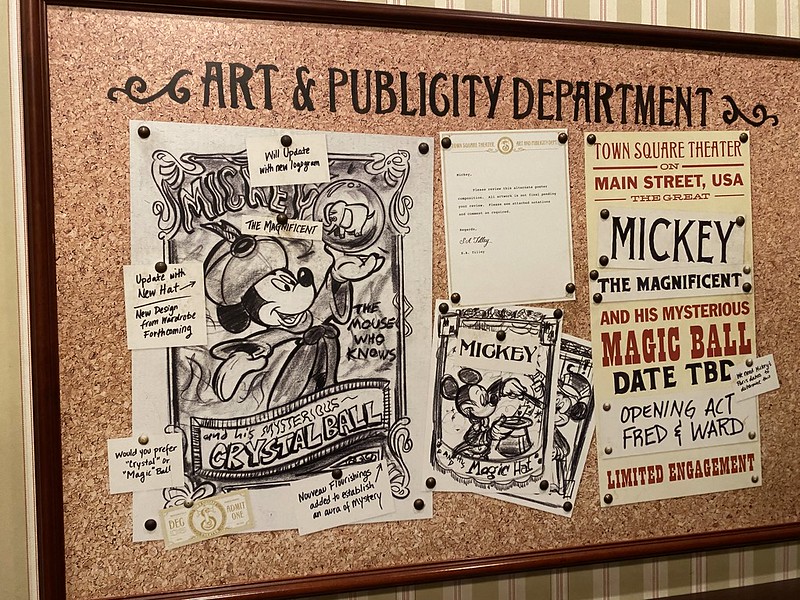 ART & PUBLICITY DEPARTMENT
Will Update
with new logogram
MICKEY
THE MAGNIFICENT
Update with
New Hat
New Design
from Wardrobe
Forthcoming
THE
MOUSE
WHO
KNOWS
and his MYSTERIOUS
CRYSTAL BALL
Would you prefer
"Crystal" or
"Magic" Ball
Nouveau Flourishings
added to establish
an aura of mystery
ADMIT
ONE
TOWN SQUARE THEATER
ART AND PUBLICITY DEPT.
Mickey,
Please review this alternate poster
composition. All artwork is not final pending
your review. Please see attached notations
and comment as required.
Regards,
MICKEY
AND HIS
Magic Hat
TOWN SQUARE THEATER
ON
MAIN STREET, USA
THE GREAT
MICKEY
THE MAGNIFICENT
AND HIS MYSTERIOUS
MAGIC BALL
DATE TBD
We need Mickey's
Paris dates to
determine this
OPENING ACT
FRED & WARD
LIMITED ENGAGEMENT